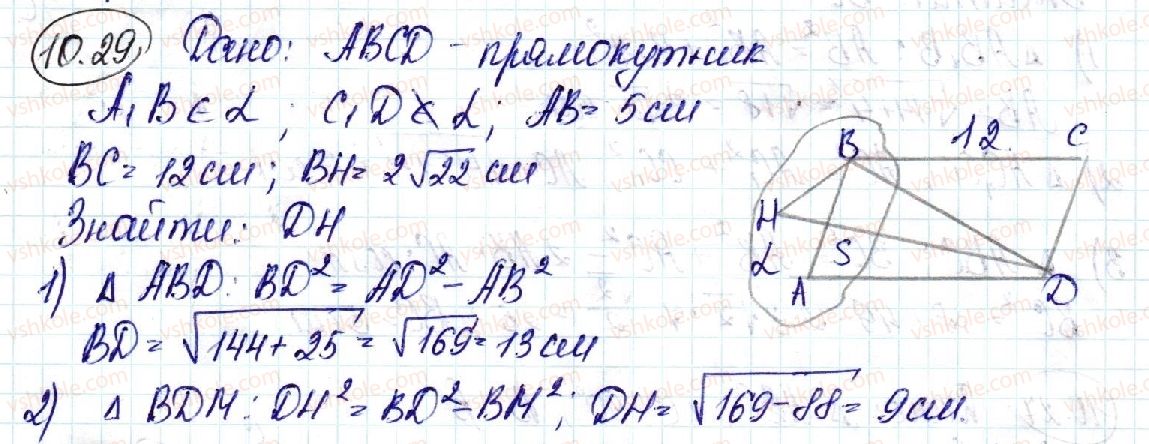 10.29, Дано: ABCD - прямокутник
A, B ∈ α ; C, D ∉ α; AB = 5 см
BC = 12 см; BH = 2√22 см
Знайти: DH
1) Δ ABD: BD² = AD² - AB²
BD = √144+25 = √169 = 13 см
2) Δ BDM: DH² = BD² - BM²; DH = √169-88 = 9 см
B 12 C
H
α 5
A D
vshkole.com